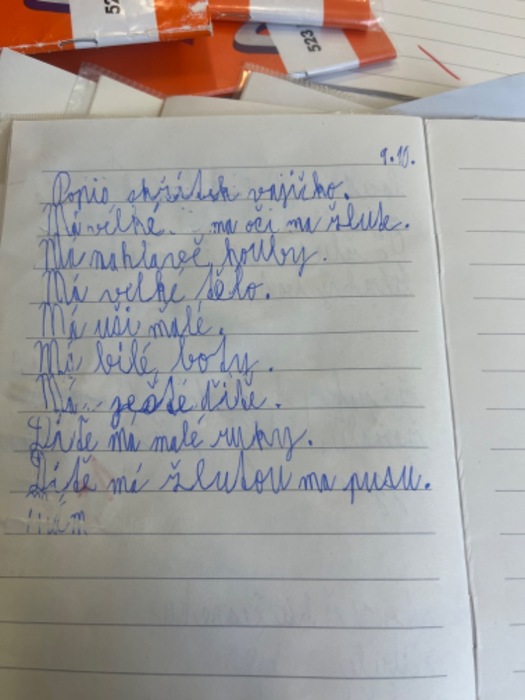 523
523
9.10.
Popis skřítek vajíčko.
Má velké. ma oči ma žluté.
Má nahlavě houby.
Má velké tělo.
Má uši malé.
Má bílé boty.
Má ještě dítě.
Dítě má malé ruky.
Dítě má žlutou ma pusu.